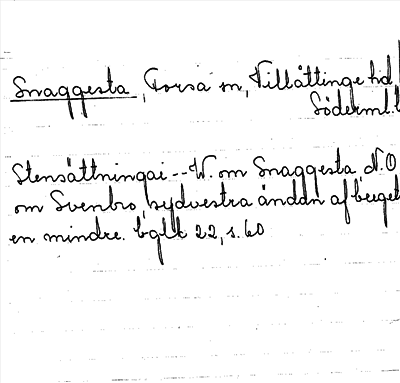 Snaggesta, Forsa sn, Villåttinge hd
Söderml.l
Stensättningai -- W. om Snaggesta, N.O
om Svenbro, sydvestra ändan af berget
en mindre. bglk 22, s. 60